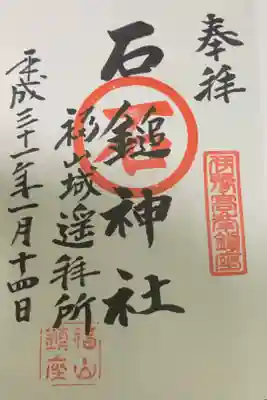 奉拝
石鎚神社
石
福山城遥拝所
平成三十一年一月十四日
福山
鎮座